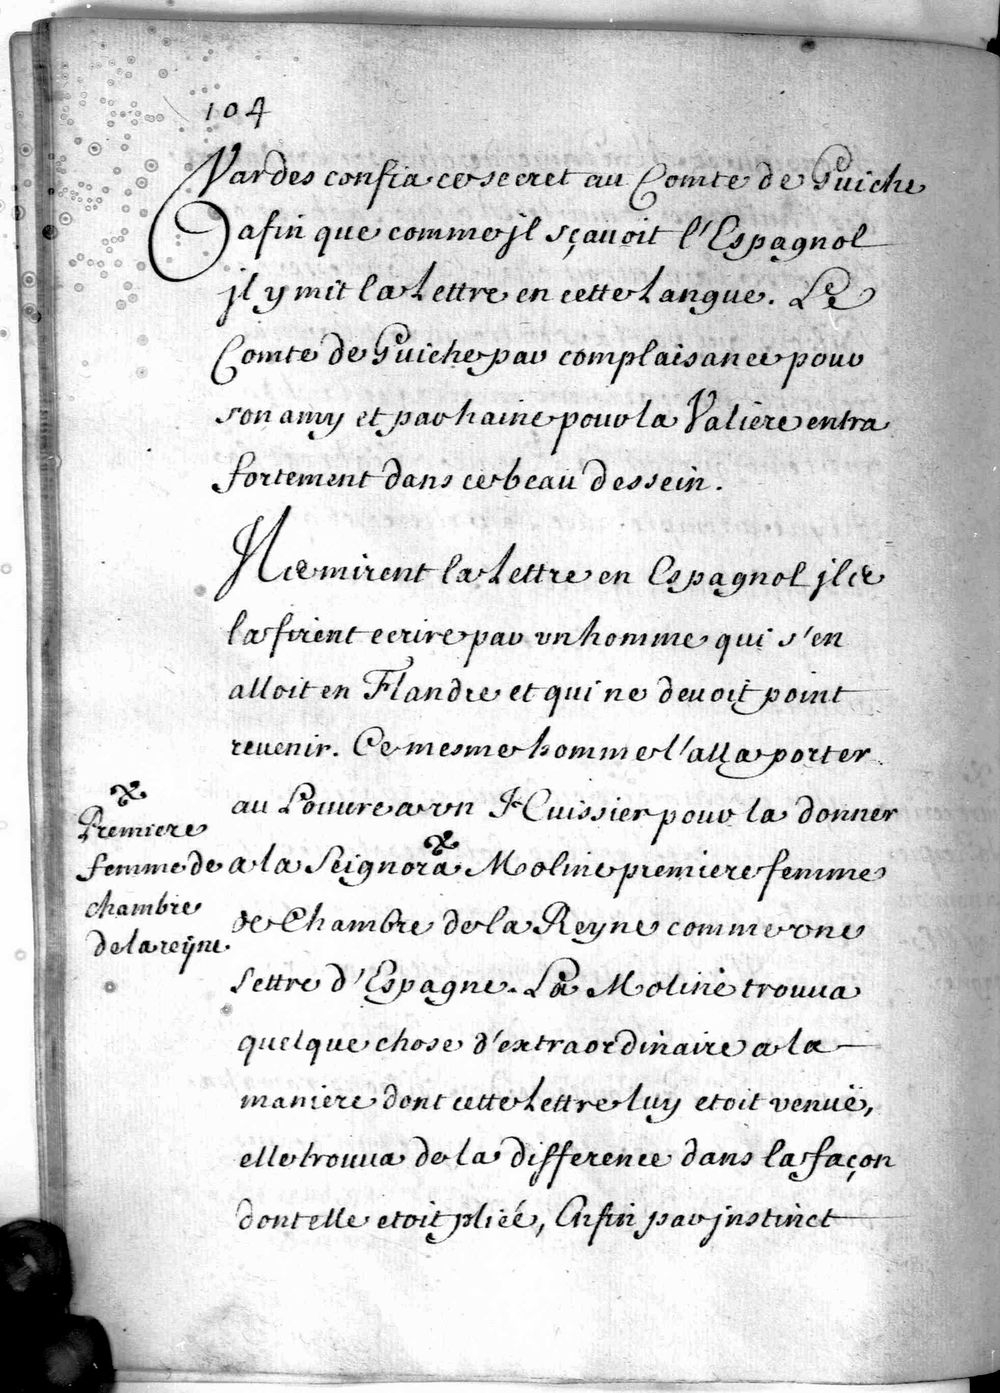 104
Vardes confia ce secret au Comte de Guiche
afin que comme jl sçavoit l'Espagnol
jl y mit la Lettre en cette Langue. Le
Comte de Guiche par complaisance pour
son amy et par haine pour la Valiere entra
fortement dans ce beau dessein.
Ilce mirent la Lettre en Espagnol jlce
la firent ecrire par vn homme qui s'en
alloit en Flandre et qui ne devoit point
revenir. Ce mesme homme l'alla porter
au Louvre a vn Huissier pour la donner
a la Seignora Moline premiere femme
de Chambre de la Reyne comme vne
Lettre d'Espagne. La Moline trouua
quelque chose d'extraordinaire a la
maniere dont cette Lettre luy etoit venuë,
elle trouua de la difference dans la façon
dont elle etoit pliée, Enfin par jnstinct
Premiere
femme de
chambre
de la reyne.